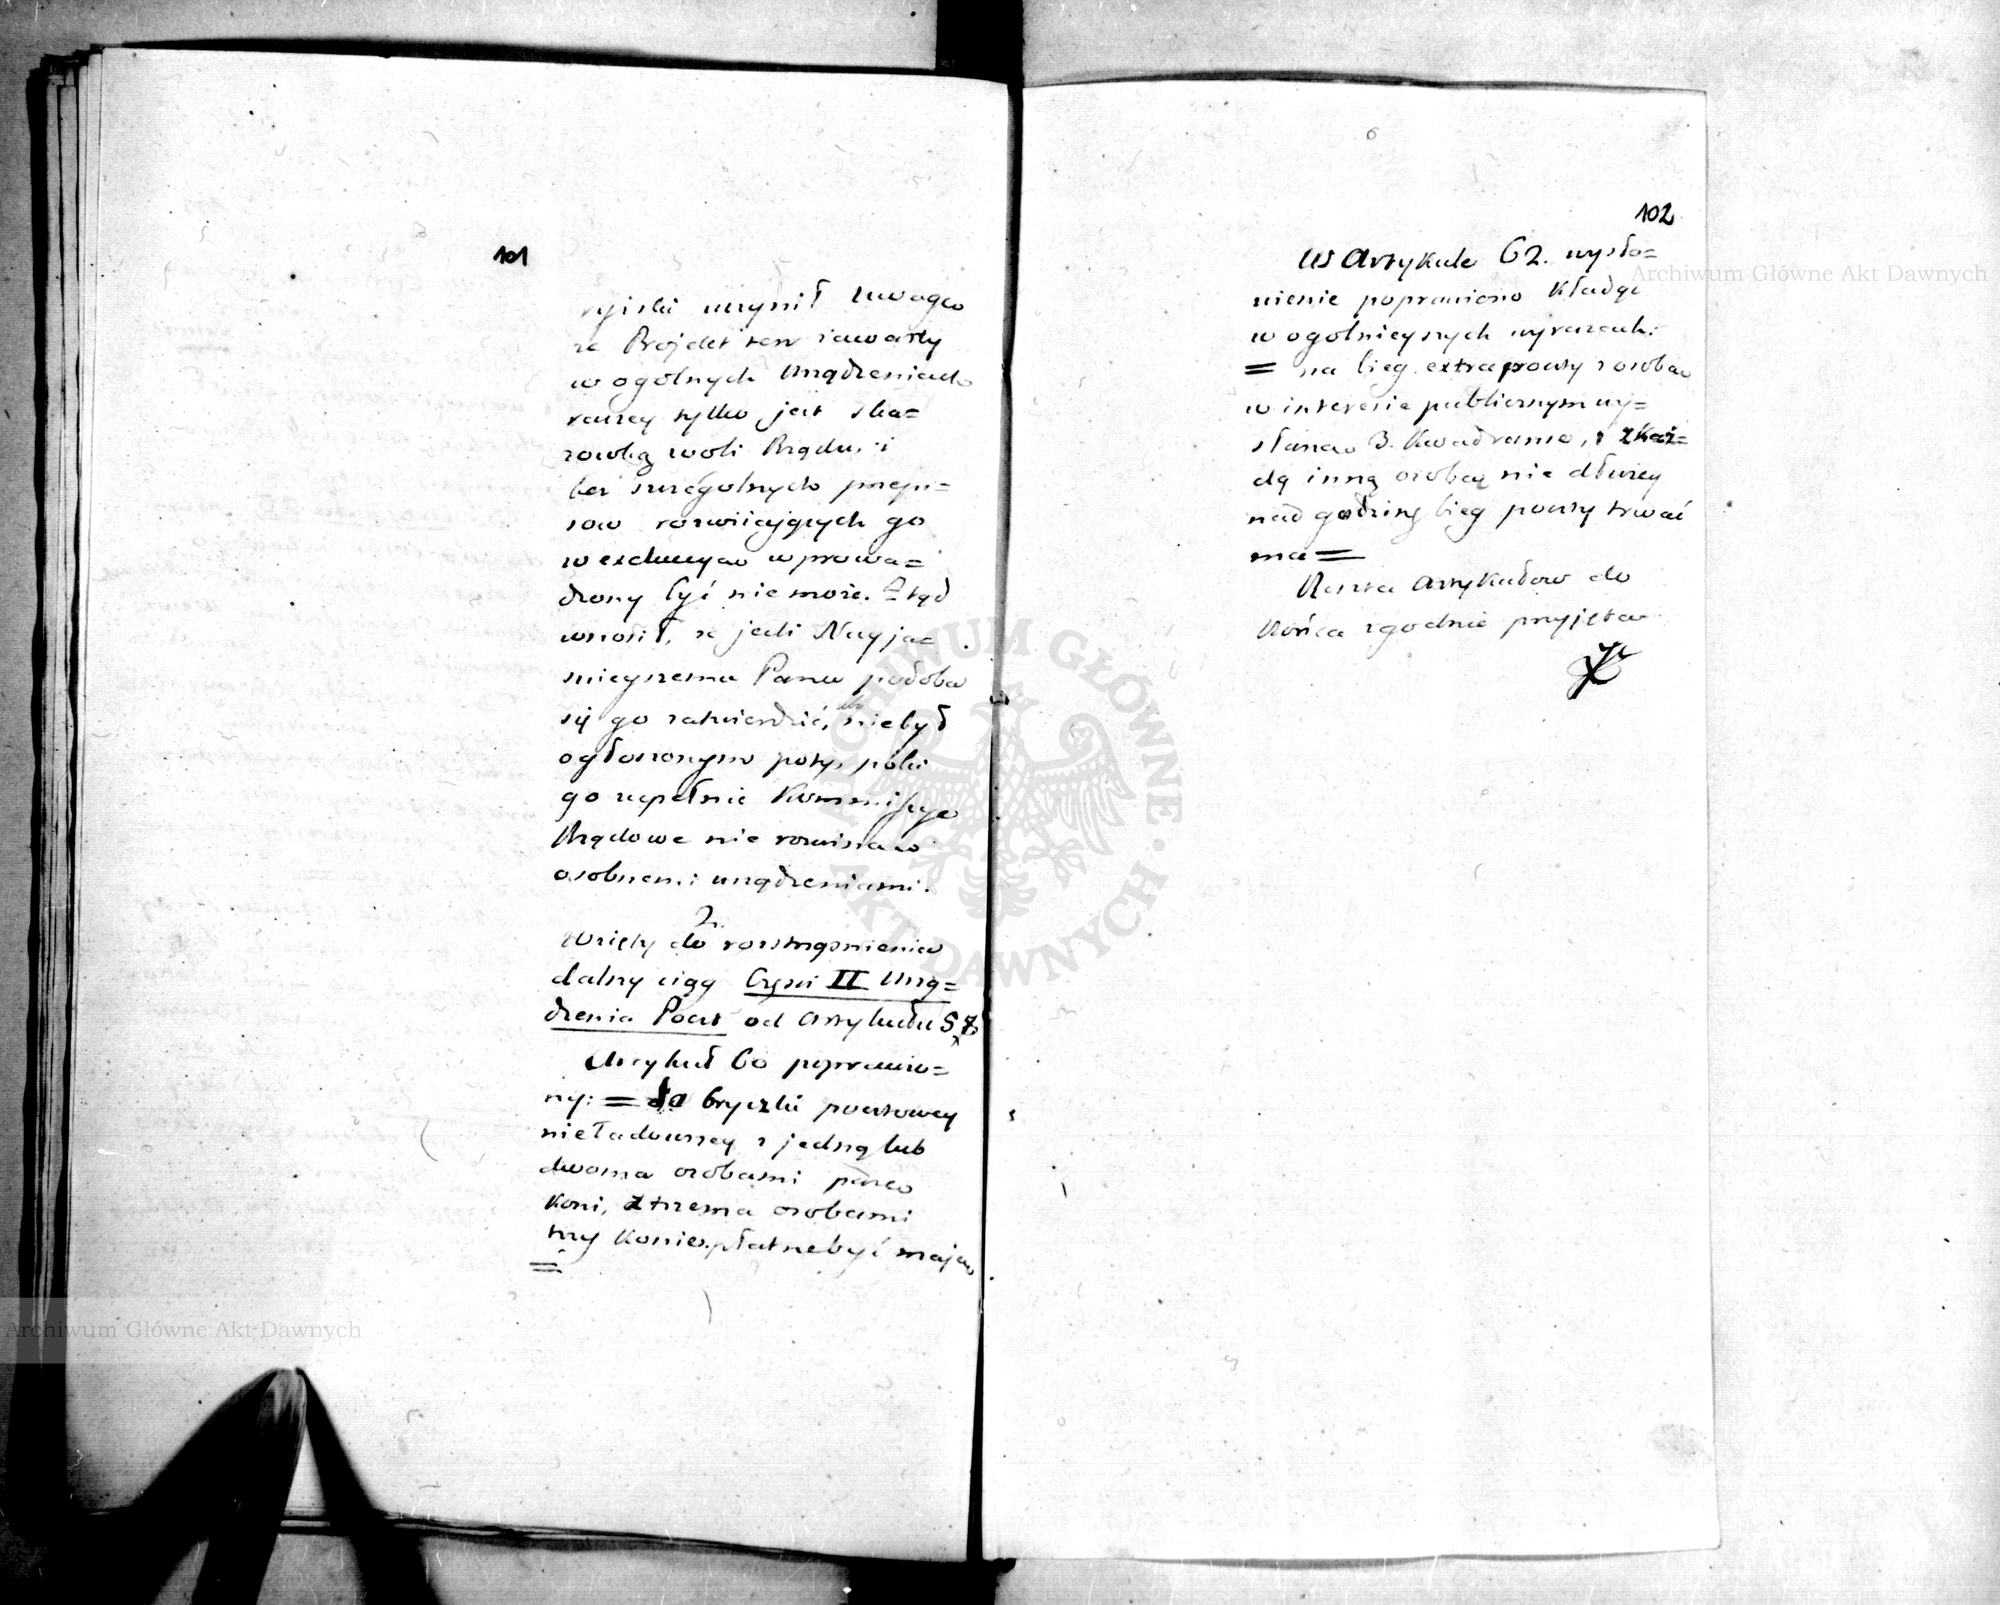 101
ryiski uczynił uwagę
że Projekt ten zawarty
w ogólnych Urządzeniach
raczey tylko jest ska=
zówką woli Rządu, i
bez szczegolnych przepi=
sow rozwiiaiących go
w exekucyą wprowa=
dzony być nie może. Ztąd
wnosił, że jeśli Nayja=
snieyszemu Panu podoba
się go zatwierdzić, aby nie był
ogłoszonym poty, póki
go zupełnie Kommissye
Rządowe nie rozwiną
osobnemi urządzeniami.
2.
Wzięty do roztrząśnienia
dalszy ciąg Części II Urzą=
dzenia Poczt od Artykułu 57.
Artykuł 60 poprawio=
ny: = do bryczki pocztowey
nieładowney z jedną lub
dwoma osobami parę
koni, z trzema osobami
trzy konie płatne być mają
=
102
W Artykule 62. wysło=
wienie poprawiono kładąc
w ogolnieyszych wyrazach:
= na bieg extrapoczty z osobą
w interesie publicznym wy=
słaną 3. Kwadranse, z każ=
dą inną osobą nie dłużey
nad godzinę bieg poczty trwać
ma =
Reszta Artykułow do
końca zgodnie przyjęta
Archiwum Główne Akt Dawnych
Archiwum Główne Akt Dawnych
ARCHIWUM GŁÓWNE · AKT DAWNYCH ·